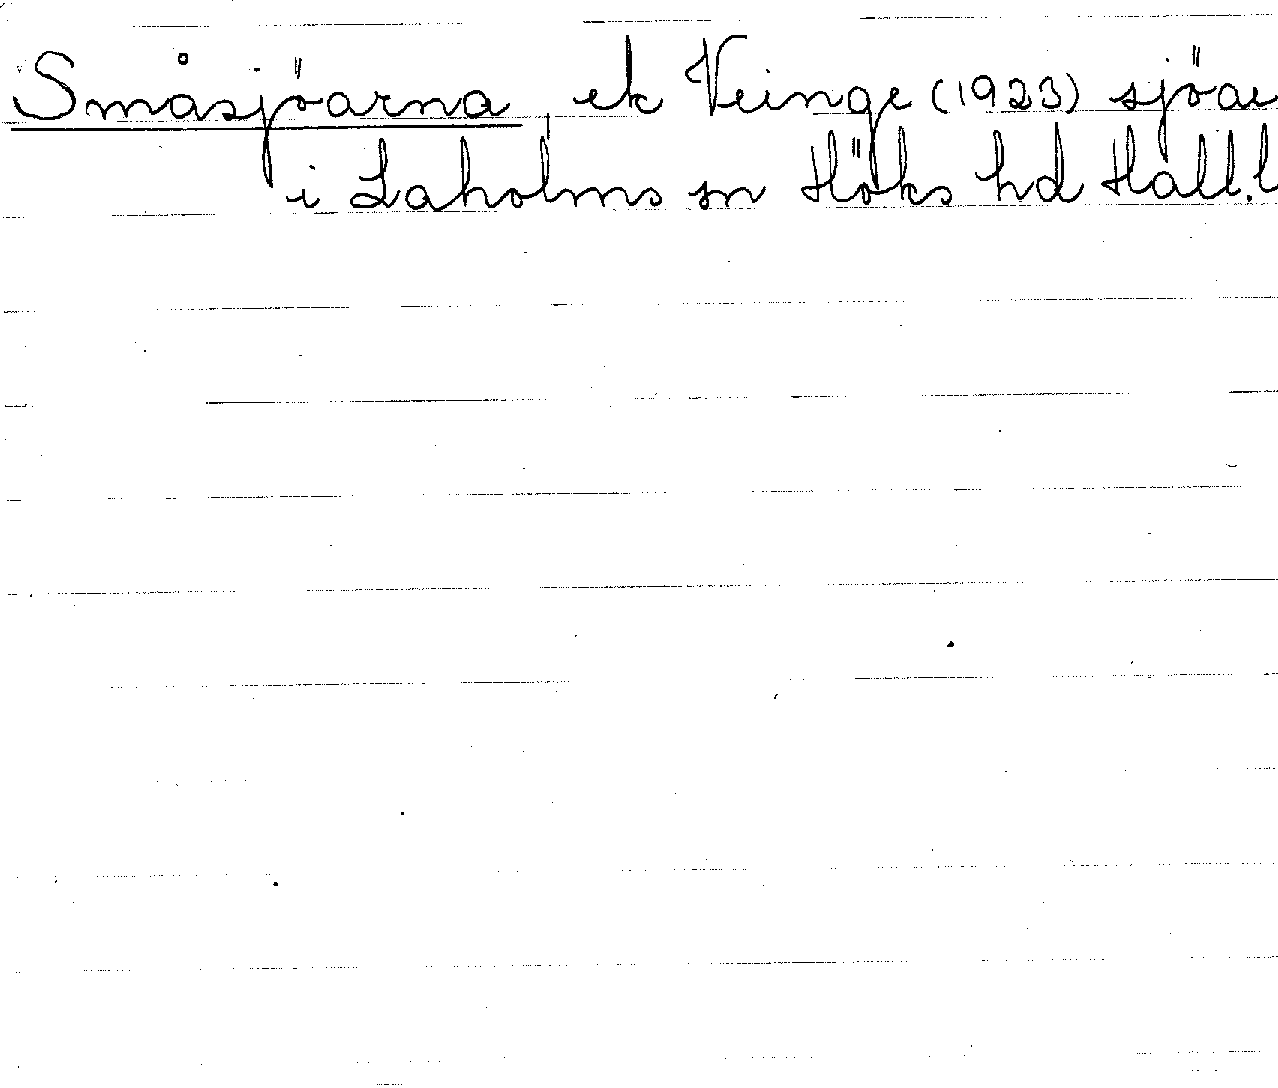 Småsjöarna, ek Veinge (1923) sjöar
i Laholms sn Höks hd Hall.l